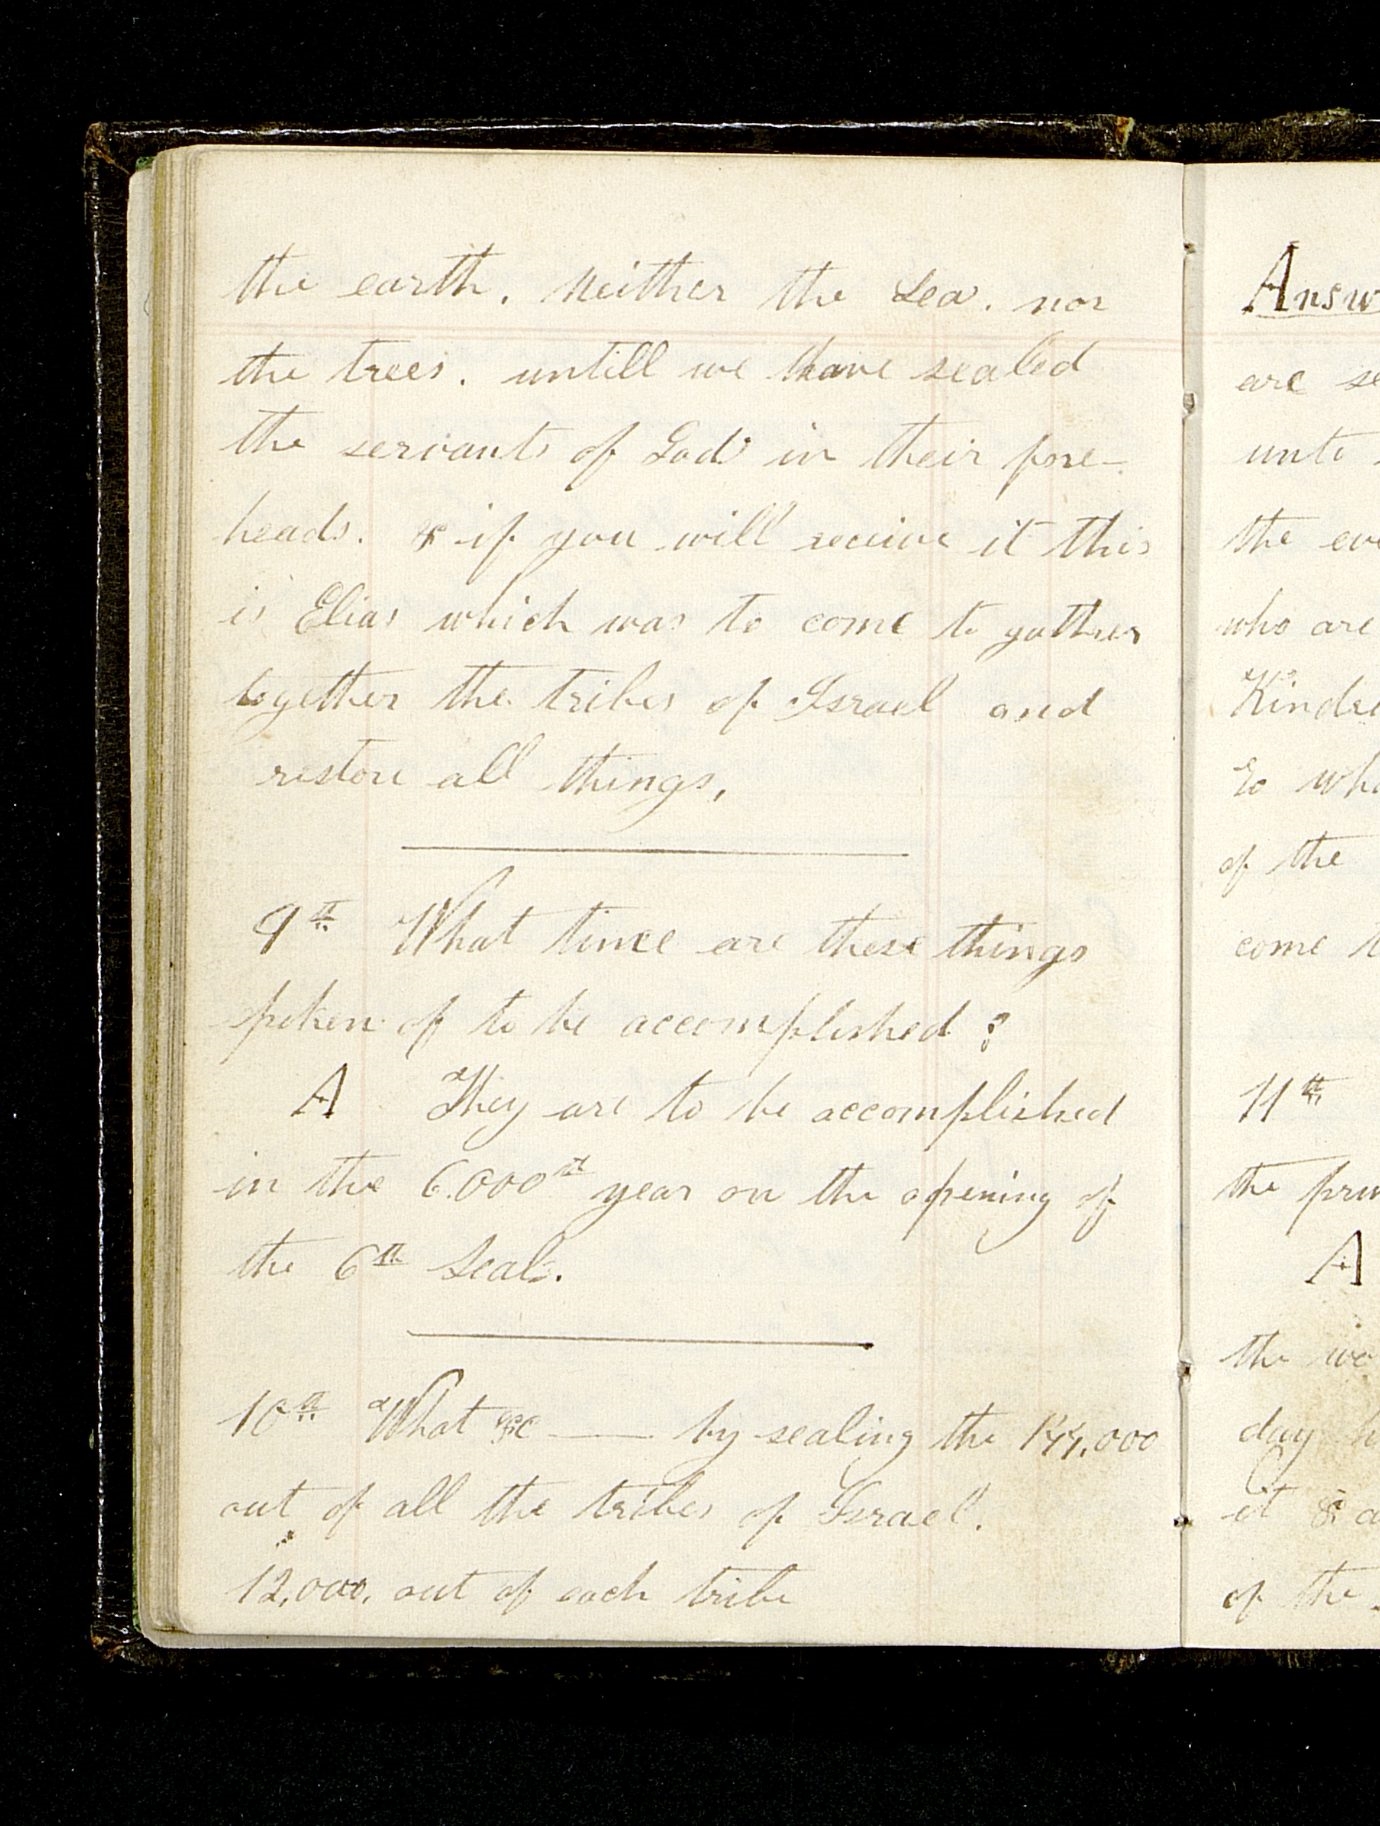 the earth. Neither the Sea. nor
the trees. untill we have sealed
the servants of God in their fore-
heads. & if you will receive it this
is Elias which was to come to gather
together the tribes of Israel and
restore all things,
9th What time are these things
spoken of to be accomplished?
A They are to be accomplished
in the 6.000th year on the opening of
the 6th Seal.
10th What &c —— by sealing the 144,000
out of all the tribes of Israel.
12,000, out of each tribe
Answ
are se
unto
the eve
who are
Kindre
to who
of the
come t
11th
the prin
A
the wo
day h
it & a
of the